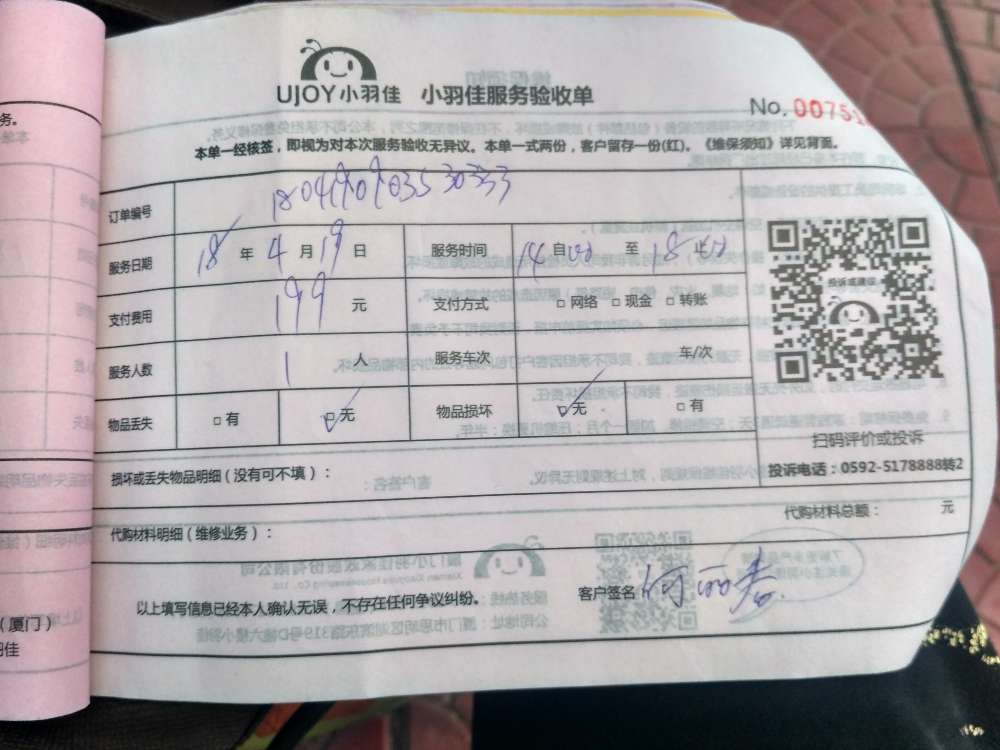 UJOY小羽佳 小羽佳服务验收单
No. 00751
本单一经核签，即视为对本次服务验收无异议。本单一式两份，客户留存一份(红)。《维保须知》详见背面。
订单编号 1804190903530333
服务日期 18年4月19日 服务时间 14自00至18止00
支付费用 199元 支付方式 □网络 □现金 □转账
服务人数 1人 服务车次 车/次
物品丢失 □有 □无 物品损坏 □无 □有
投诉或建议
扫码评价或投诉
投诉电话：0592-5178888转2
损坏或丢失物品明细（没有可不填）：
代购材料明细（维修业务）： 代购材料总额： 元
以上填写信息已经本人确认无误，不存在任何争议纠纷。 客户签名
务。
（厦门）
羽佳